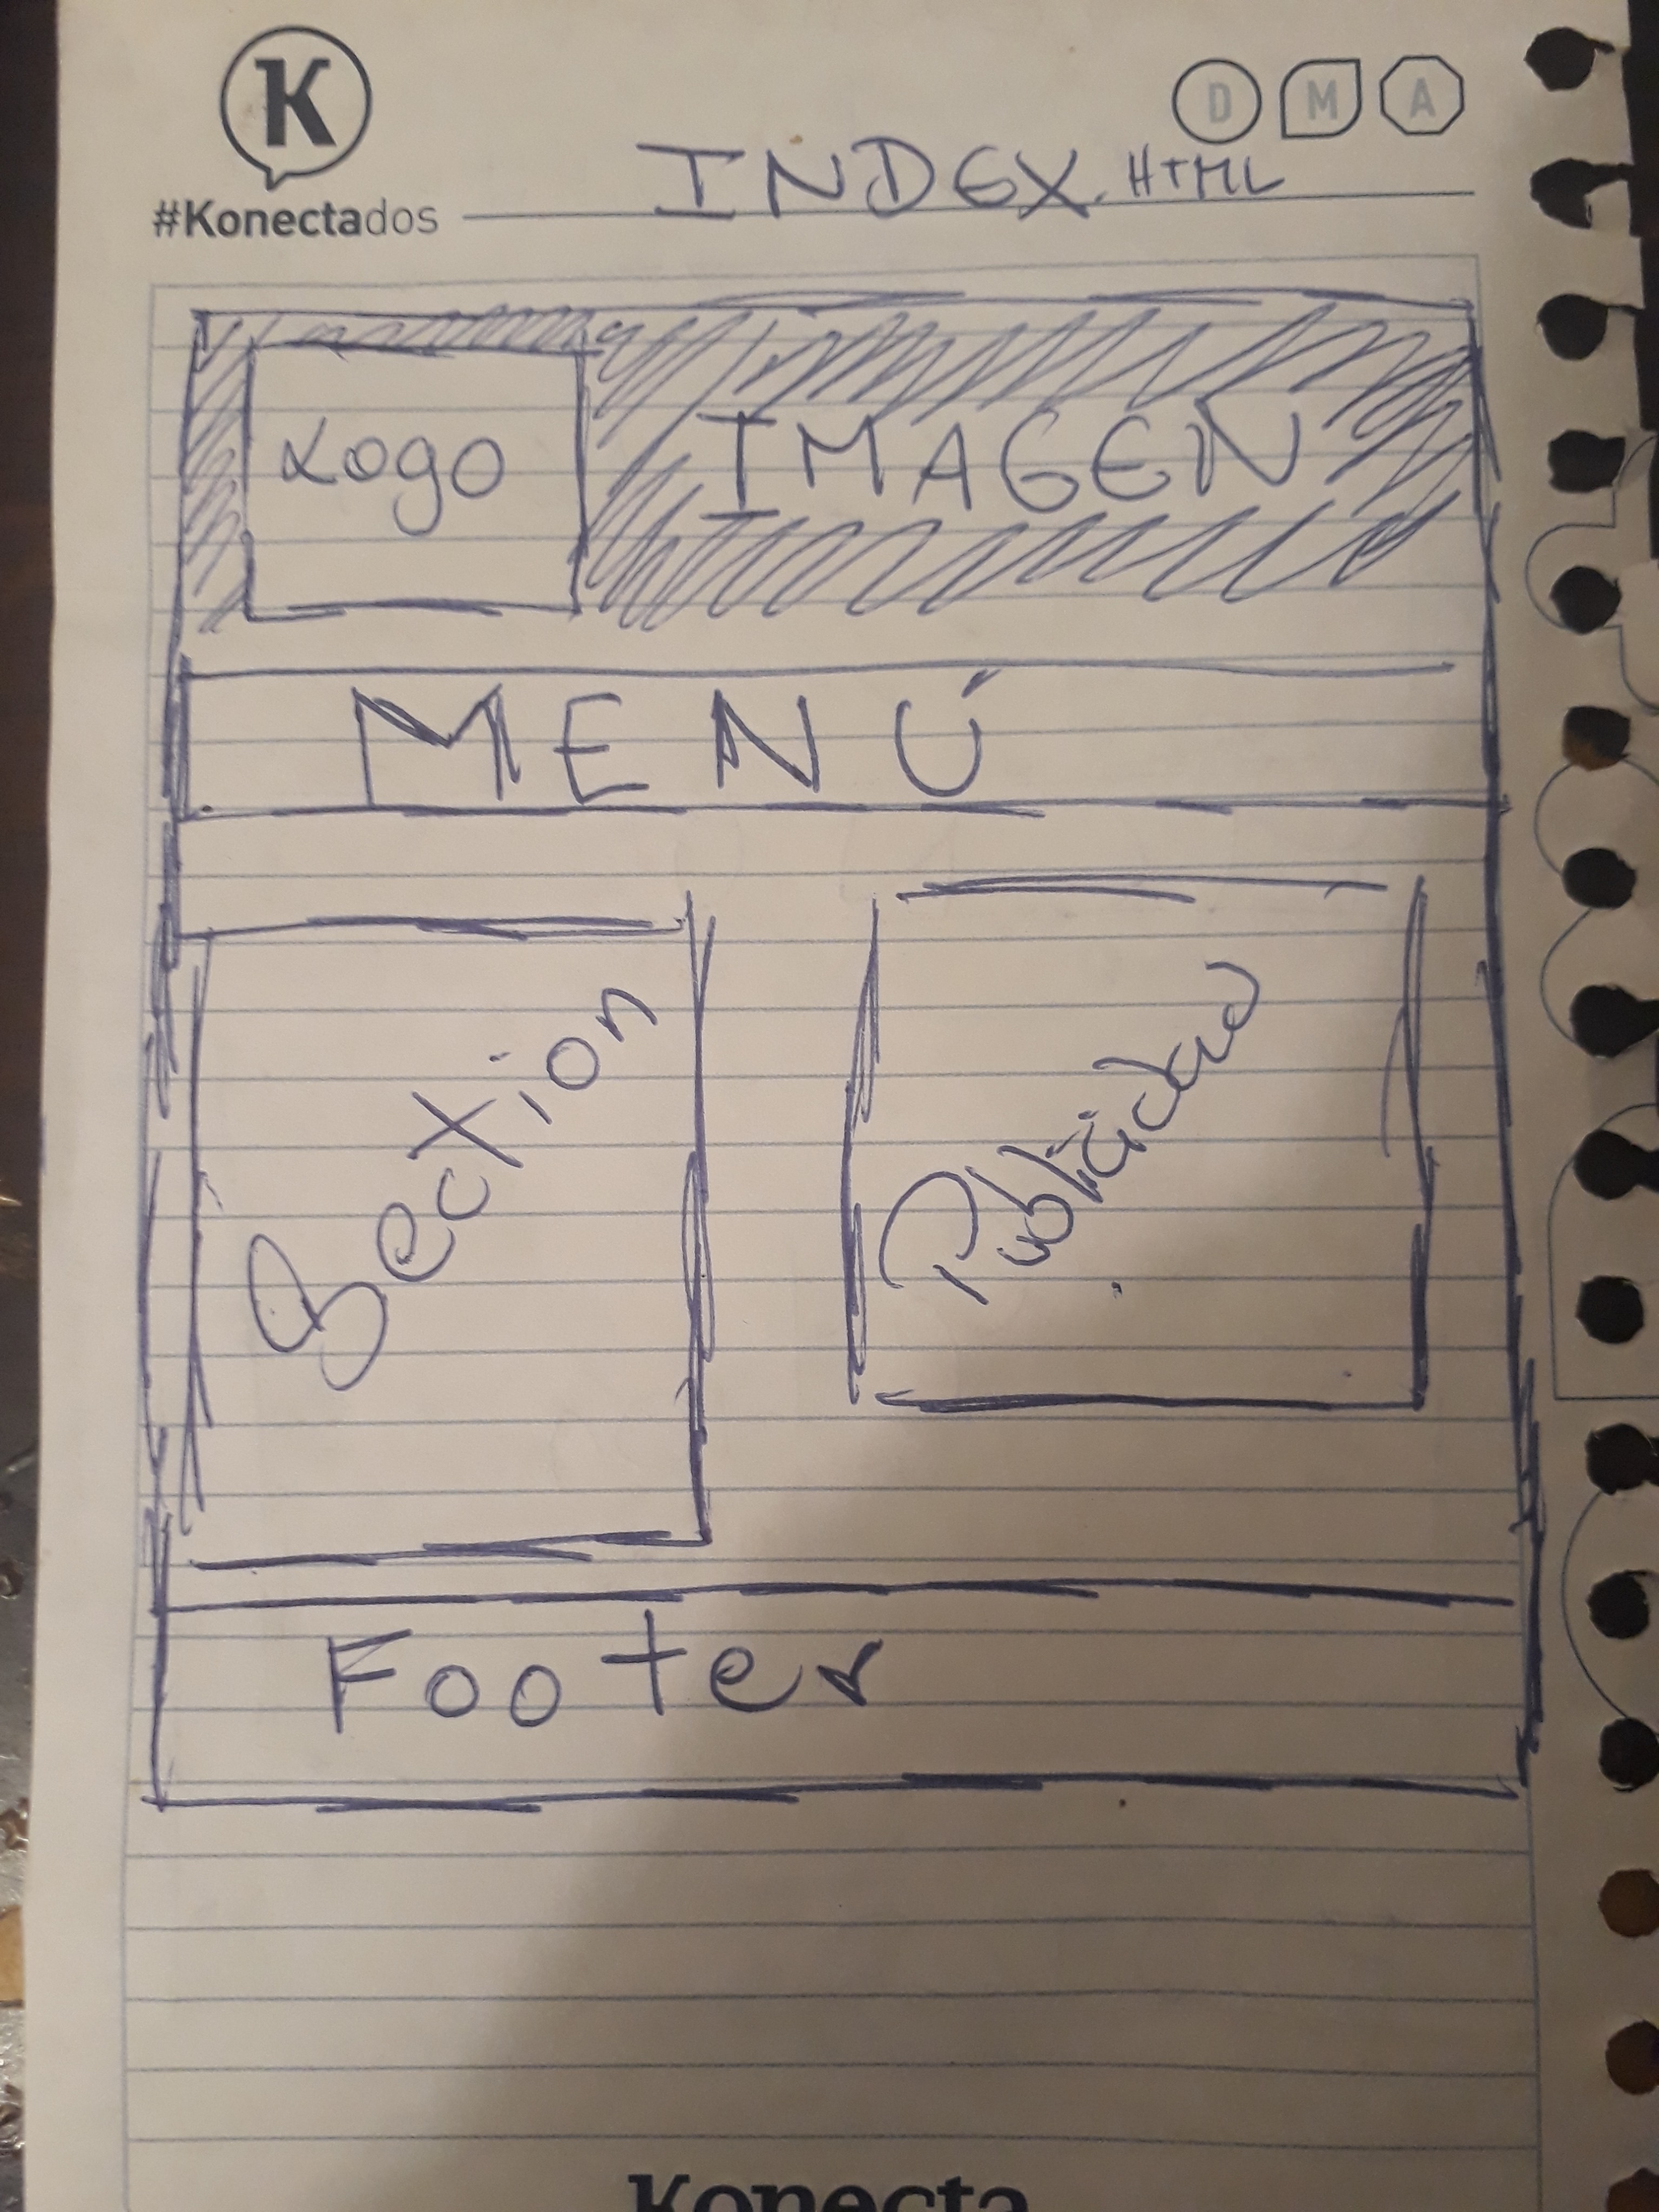 K
D M A
#Konectados
INDEX.HTML
Logo
IMAGEN
MENÚ
Section
Publicidad
Footer
Konecta